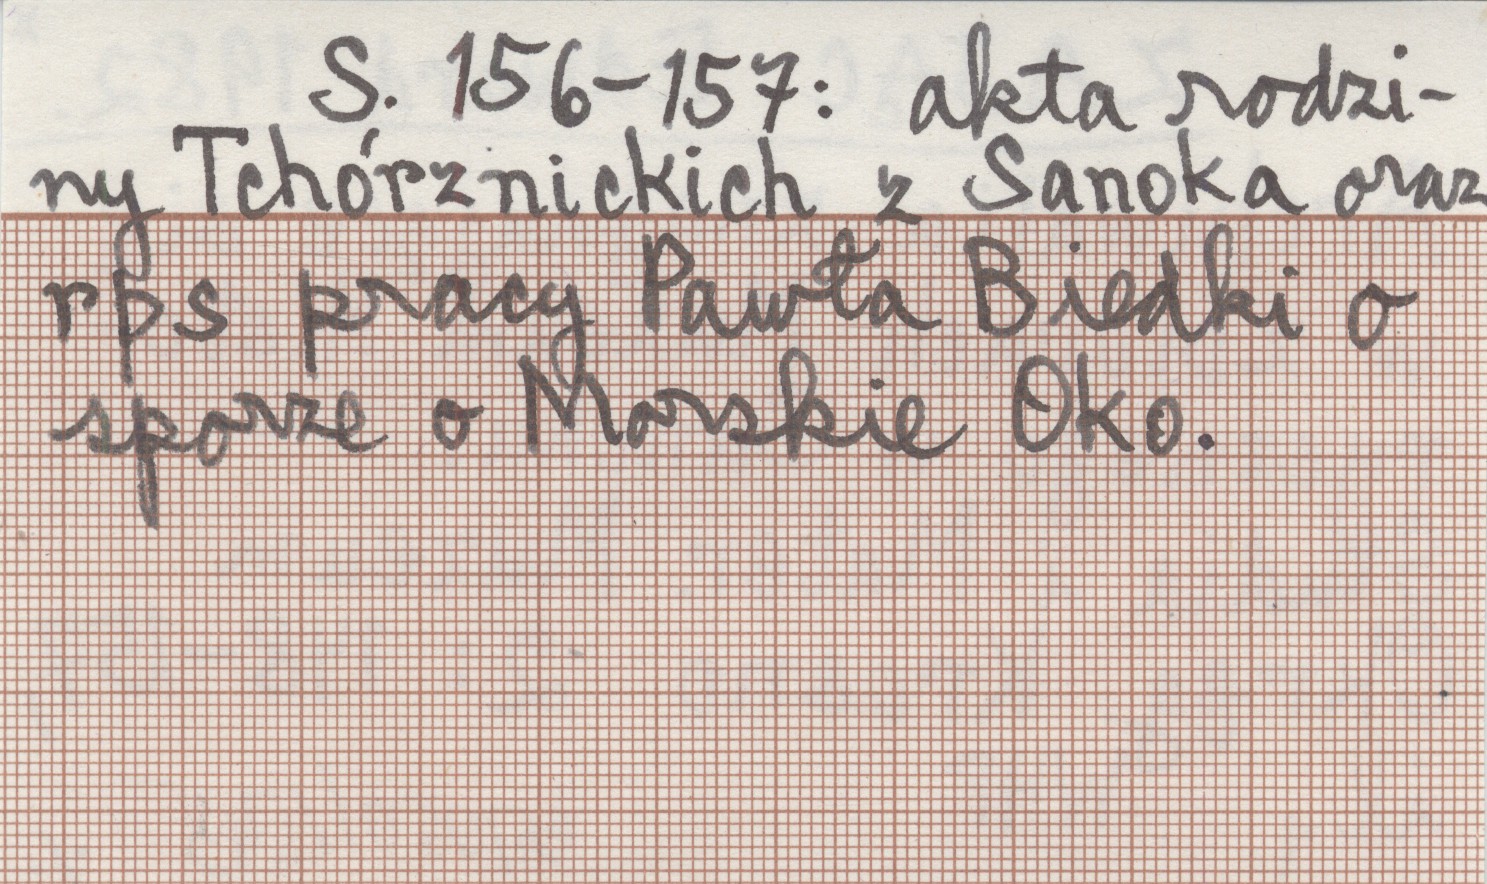 S. 156-157: akta rodzi-
ny Tchórznickich z Sanoka oraz
rps pracy Pawła Biedki o
sporze o Morskie Oko.